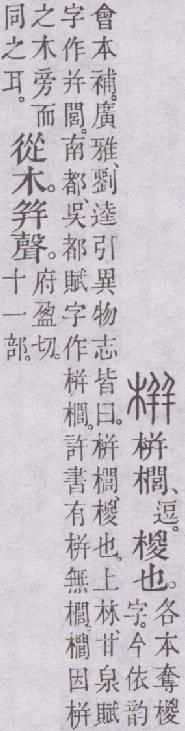 栟櫚、逗。椶也。各本奪椶
字。今依韵
會本補。廣雅、劉逵引異物志皆曰。栟櫚、椶也。上林甘泉賦
字作并閭。南都、吳都賦字作栟櫚。許書有栟無櫚。櫚因栟
之木旁而
同之耳。從木。并聲。府盈切。
十一部。